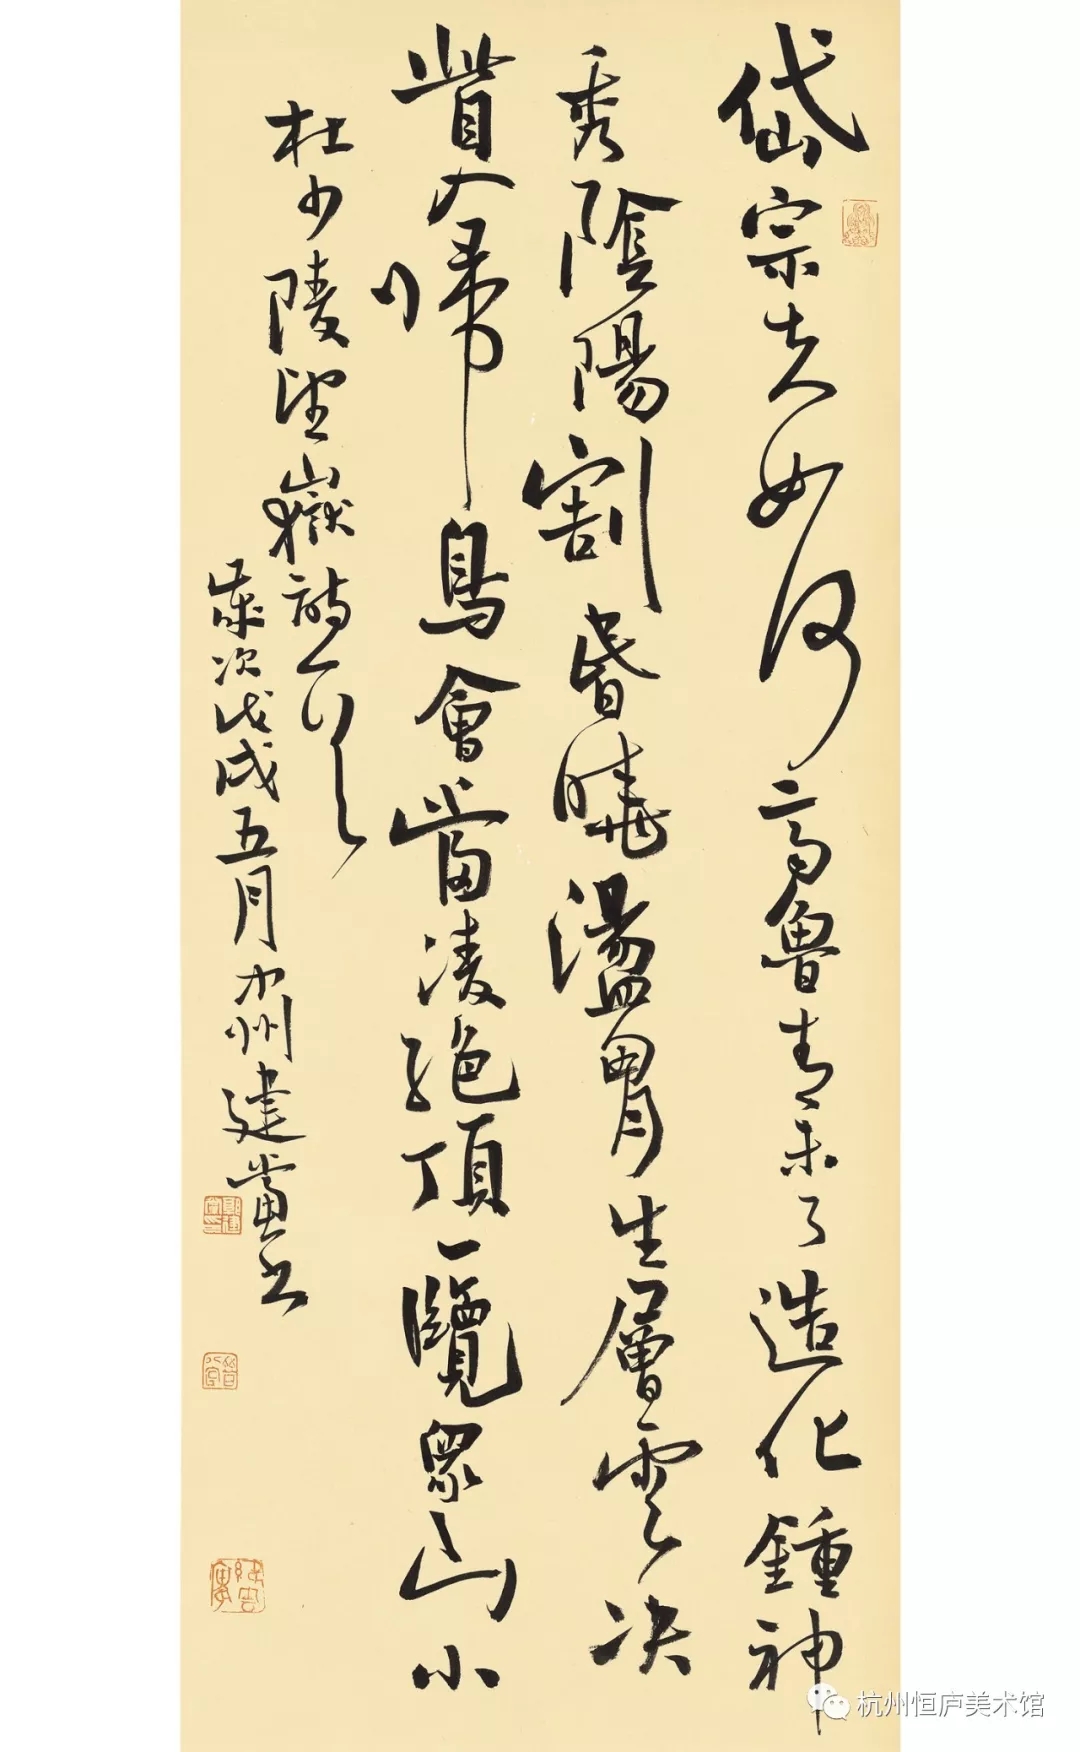 岱宗夫如何齊魯青未了造化鍾神
秀陰陽割昬曉盪胷生層雲决
眥入歸鳥會當凌絕頂一覽眾山小
杜少陵望嶽詩一首
歲次戊戌五月中州建黨書
杭州恒庐美术馆